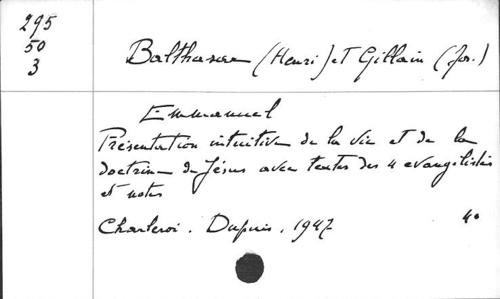 295
50
3
Balthasar (Henri) et Gillain (Jos.)
Emmanuel
Présentation intuitive de la vie et de la
doctrine de Jésus avec textes des 4 évangélistes
et notes
Charleroi. Dupuis, 1947 4°